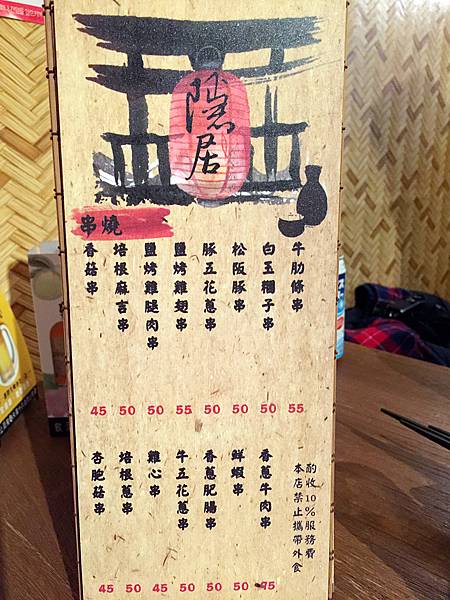 隱居
串燒
牛肋條串
白玉糰子串
松阪豚串
豚五花蔥串
鹽烤雞翅串
鹽烤雞腿肉串
培根麻吉串
香菇串
45 50 50 55 50 50 50 55
酌收10%服務費
本店禁止攜帶外食
香蔥牛肉串
鮮蝦串
香蔥肥腸串
牛五花蔥串
雞心串
培根蔥串
杏胞菇串
45 50 45 50 50 50 75